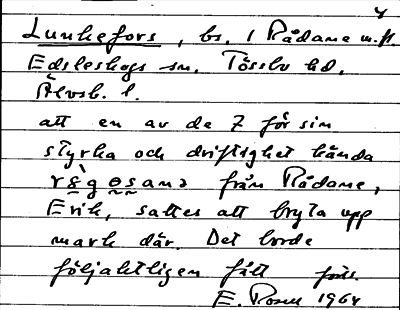 4
Lunkefors, bs. i Rådane m.fl.
Edsleskogs sn. Tössbo hd.
Älvsb. l.
att en av de 7 för sin
styrka och driftighet kända
från Rådane,
Erik, sattes att bryta upp
mark där. Det borde
följaktligen fått
E. Rosen 1964